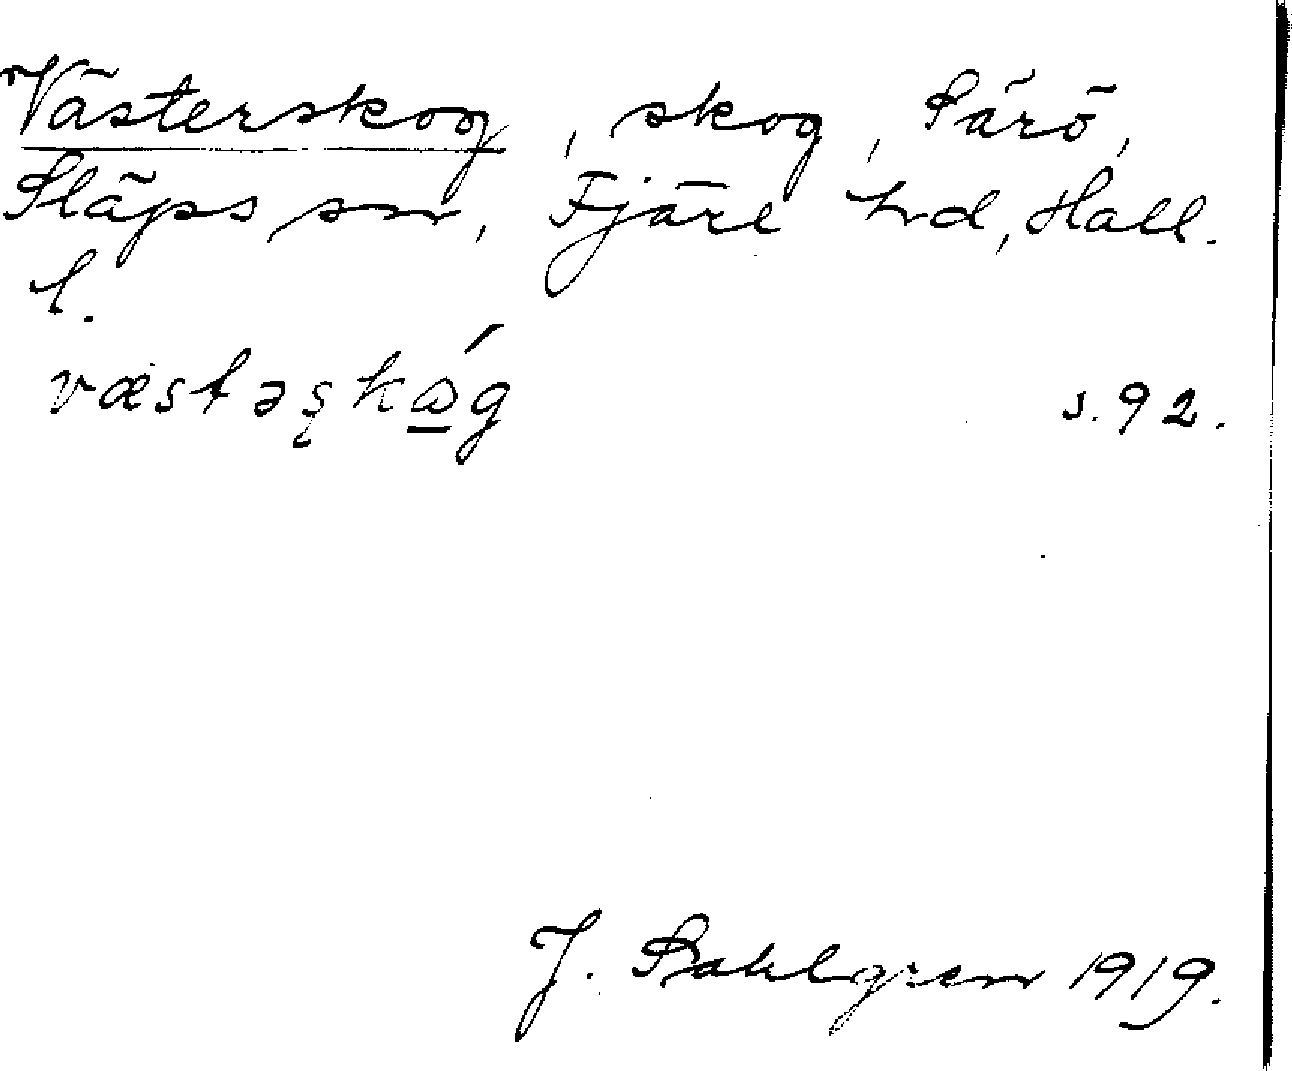 Västerskog, skog, Särö,
Släps sn, Fjäre hrd, Hall.
l.
s. 92.
J. Sahlgren 1919.